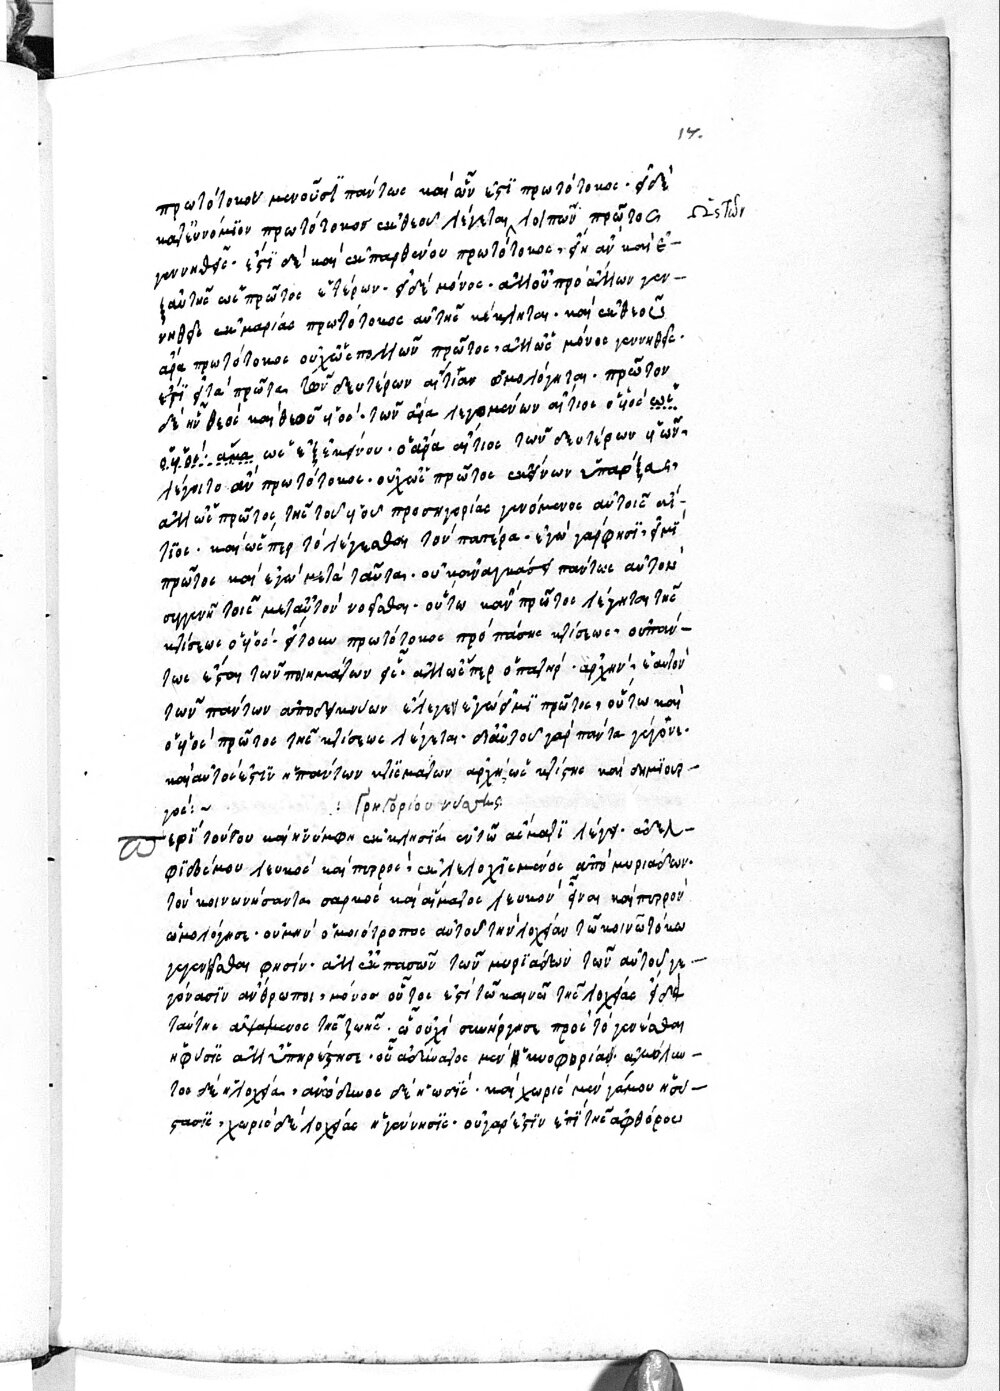 17.
πρωτότοκου μενοῦσι πάντως καὶ ὧν ἐστὶ πρωτότοκος. εἰ δὲ
ὡς τῶν
κατ' εὐνόμιον πρωτότοκος ἐκ θεοῦ λέγεται λοιπῶν πρῶτος
γεννηθείς. ἐστὶ δὲ καὶ ἐκ παρθένου πρωτότοκος, εἴη ἂν καὶ ἐ-
ξ αὐτῆς ὡς πρῶτος ἑτέρων. εἰ δὲ μόνος. ἀλλ' οὐ πρὸ ἄλλων γεν-
νηθεὶς ἐκ μαρίας πρωτότοκος αὐτῆς κέκληται. καὶ ἐκ θεοῦ
ἄρα πρωτότοκος οὐχ ὡς πολλῶν πρῶτος, ἀλλ' ὡς μόνος γεννηθείς.
ἔτι εἰ τὰ πρῶτα τῶν δευτέρων αἰτίαν ὡμολόγηται. πρῶτον
δὲ ἦν θεὸς καὶ θεοῦ υἱός. τῶν ἄρα λεγομένων αἴτιος ὁ υἱὸς ὡς
ὁ υἱός. ἅμα ὡς ἐξ ἐκείνου. ὁ ἄρα αἴτιος τῶν δευτέρων υἱῶν,
λέγοιτο ἂν πρωτότοκος. οὐχ ὡς πρῶτος ἐκείνων ὑπάρξας,
ἀλλ' ὡς πρῶτος τῆς τοῦ υἱοῦ προσηγορίας γενόμενος αὐτοῖς αἴ-
τιος. καὶ ὥσπερ τὸ λέγεσθαι τὸν πατέρα. ἐγὼ γάρ φησιν, εἰμὶ
πρῶτος καὶ ἐγὼ μετὰ ταῦτα. οὐ καταναγκάσει πάντως αὐτὸν
συγγενῆ τοῖς μετ' αὐτὸν νοεῖσθαι. οὕτω κἂν πρῶτος λέγηται τῆς
κτίσεως ὁ υἱός. εἴτουν πρωτότοκος πρὸ πάσης κτίσεως, οὐ πάν-
τως ἔσται τῶν ποιημάτων εἷς. ἀλλ' ὥσπερ ὁ πατὴρ. ἀρχὴν, ἑαυτὸν
τῶν πάντων ἀποδεικνύων ἔλεγεν ἐγώ εἰμι πρῶτος, οὕτω καὶ
ὁ υἱὸς πρῶτος τῆς κτίσεως λέγεται. δι' αὐτοῦ γὰρ πάντα γέγονε.
καὶ αὐτός ἐστιν ἡ πάντων κτισμάτων ἀρχὴ, ὡς κτίστης καὶ δημιουρ-
γός: ~
: Γρηγορίου νύσης
Περὶ τούτου καὶ ἡ νύμφη ἐκκλησία ἐν τῷ ᾄσματι λέγει. ἀδελ-
φιδός μου λευκὸς καὶ πυρρός, ἐκλελοχισμένος ἀπὸ μυριάδων.
τὸν κοινωνήσαντα σαρκὸς καὶ αἵματος λευκὸν εἶναι καὶ πυρρὸν
ὡμολόγησε. οὐ μὴν ὁμοιότροπος αὐτοῦ τὴν λοχείαν τῷ κοινῷ τόκῳ
γεγενῆσθαι φησίν. ἀλλ' ἐκ πασῶν τῶν μυριάδων τῶν αὐτοῦ γε-
γόνασιν ἄνθρωποι, μόνος οὗτος ἐπὶ τῷ καινῷ τῆς λοχείας εἴδει
ταύτης ἁψάμενος τῆς ζωῆς. ᾧ οὐχὶ συνήργησε πρὸς τὸ γενέσθαι
ἡ φύσις ἀλλ' ὑπηρέτησε. οὗ ἀσύνδυαστος μὲν ἡ κυοφορία. ἀμόλυν-
τος δὲ ἡ λοχεία, ἀνώδυνος δὲ ἡ ὠδίς. καὶ χωρὶς μὲν γάμου ἡ σύ-
στασις, χωρὶς δὲ λοχείας ἡ γέννησις. οὐ γάρ ἐστιν ἐπὶ τῆς ἀφθόρως